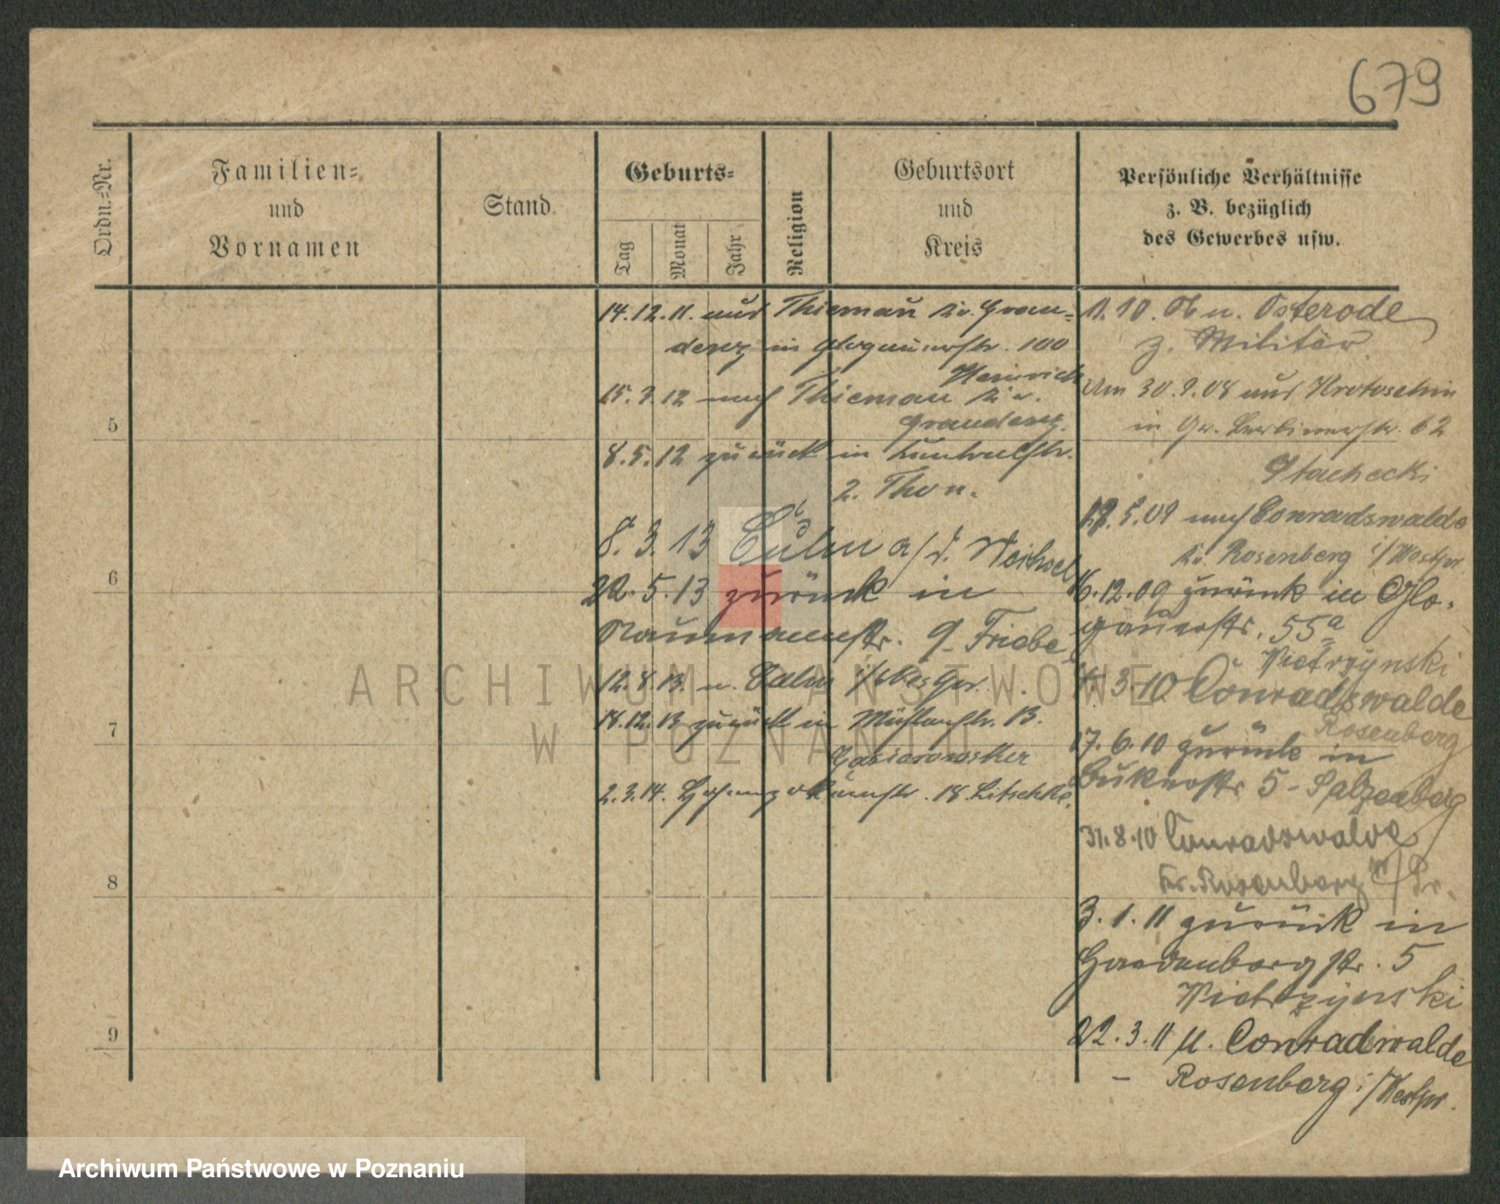 679
Ordn.=Nr.
Familien=
und
Vornamen
Stand
Geburts=
Tag
Monat
Jahr
Religion
Geburtsort
und
Kreis
Persönliche Verhältnisse
z. B. bezüglich
des Gewerbes usw.
5
6
7
8
9
14.12.11. aus Thiemau Kr. Grau=
denz in Glogauerstr. 100
Heinrich
15.3.12 nach Thiemau Kr.
Graudenz.
8.5.12 zurück in
2. Thon.
8.3.13 Culm a/d. Weichsel
22.5.13 zurück in
Naumannstr. 9 Friebe
12.8.13. n. Culm
18.12.13 zurück in 13.
Gasiorowski
2.3.14. 18 Litschke.
11.10.06 n. Osterode
z. Militär.
Am 30.9.08 aus Krotoschin
in Gr. Berlinerstr. 62
Stachecki
19.5.09 nach Conradswalde
Kr. Rosenberg i/Westpr
16.12.09 zurück in Glo=
gauerstr. 55a
Pietrzynski
3.10 Conradswalde
Rosenberg
17.6.10 zurück in
Bukerstr 5 - Salzenberg
31.8.10 Conradswalde
Kr. Rosenberg W/Pr.
3.1.11 zurück in
Hardenbergstr. 5
Pietrzynski
22.3.11 n. Conradswalde
- Rosenberg i/Westpr.
ARCHIWUM PAŃSTWOWE
W POZNANIU
Archiwum Państwowe w Poznaniu